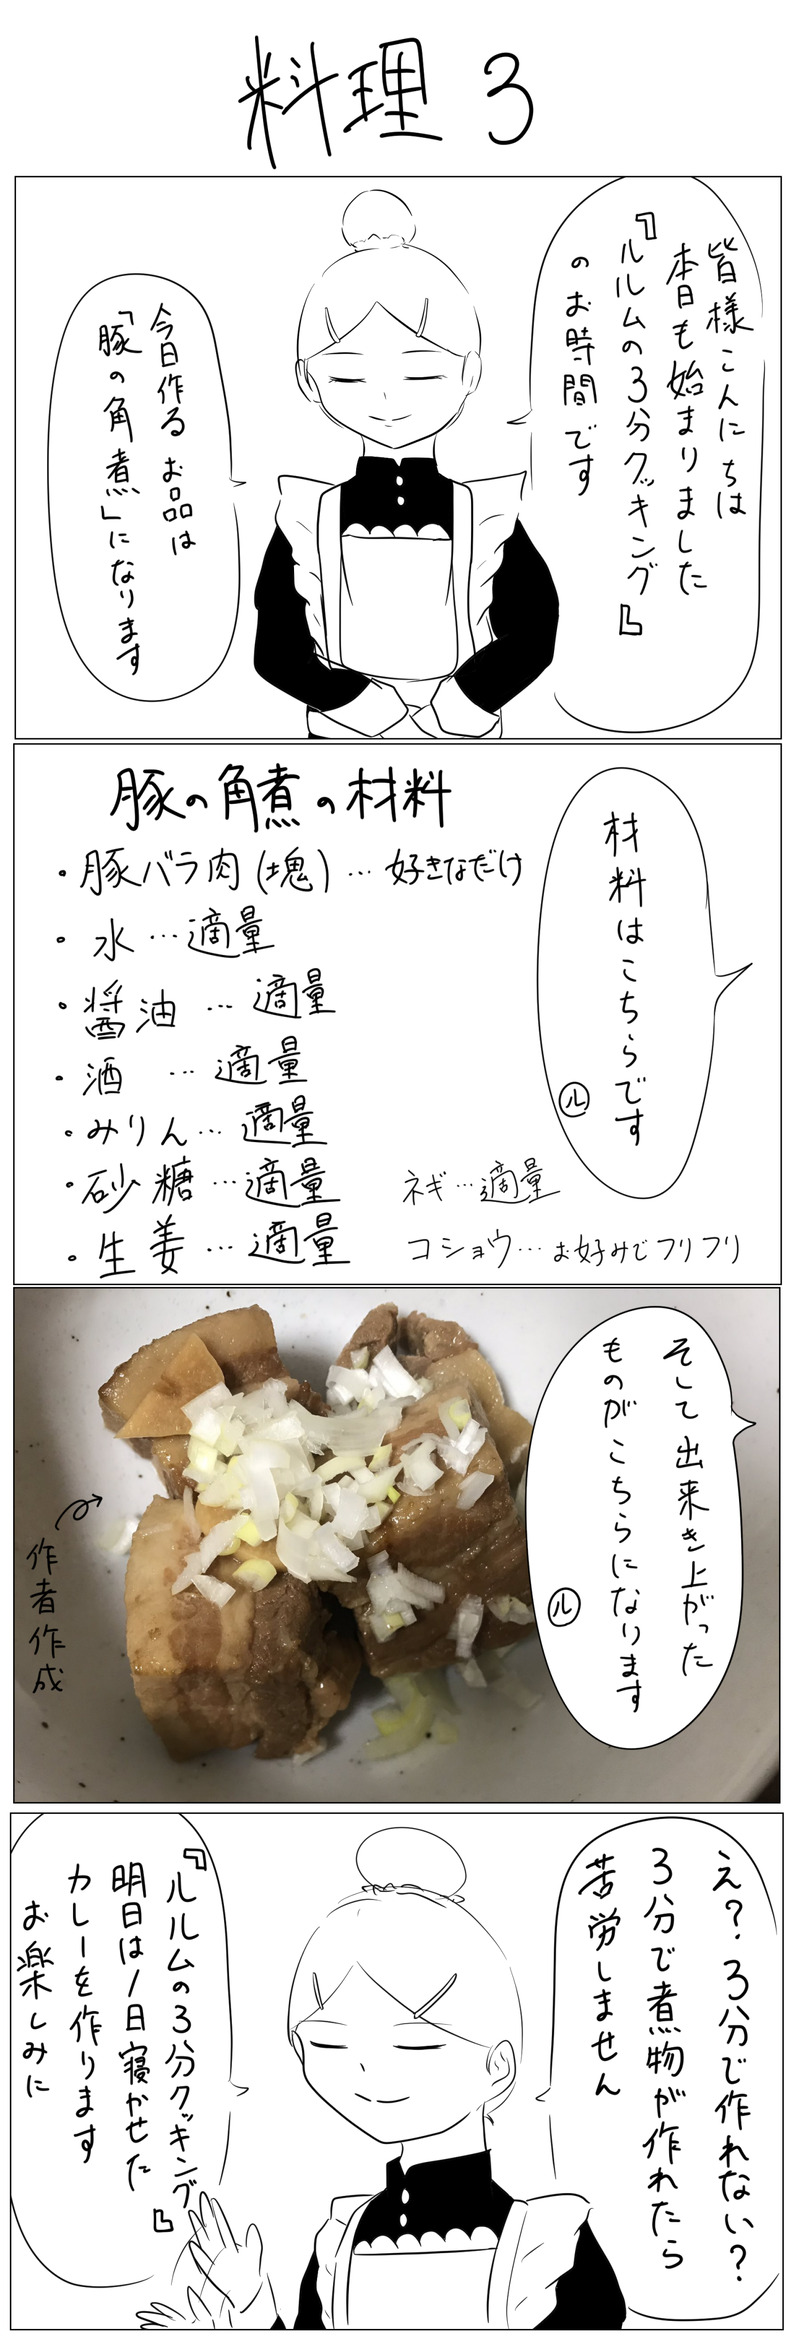 料理 3
皆様こんにちは
本日も始まりました
『ルルムの3分クッキング』
のお時間です
今日作るお品は
「豚の角煮」になります
材料はこちらです
ル
豚の角煮の材料
・豚バラ肉(塊)…好きなだけ
・水…適量
・醤油…適量
・酒…適量
・みりん…適量
・砂糖…適量
・生姜…適量
ネギ…適量
コショウ…お好みでフリフリ
そして出来き上がった
ものがこちらになります
ル
作者作成
え?3分で作れない?
3分で煮物が作れたら
苦労しません
『ルルムの3分クッキング』
明日は1日寝かせた
カレーを作ります
お楽しみに